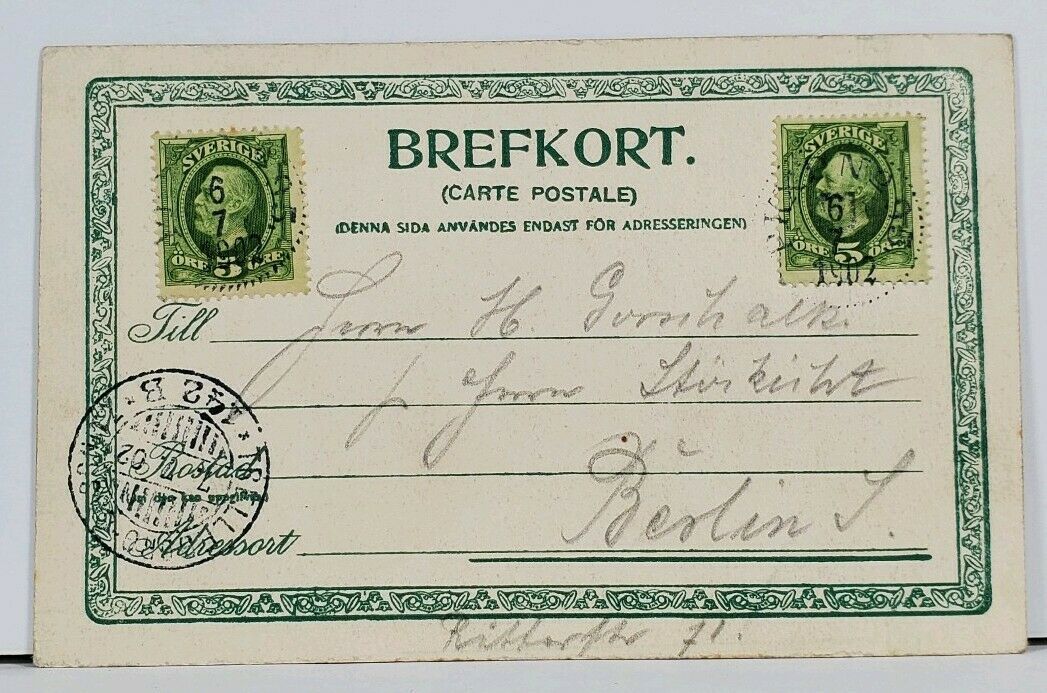 BREFKORT.
(CARTE POSTALE)
(DENNA SIDA ANVÄNDES ENDAST FÖR ADRESSERINGEN)
SVERIGE
6
7
1902
ÖRE 5 ÖRE
SVERIGE
61
7
1902
ÖRE 5 ÖRE
Till Herrn H. Gorschalk.
p Herrn
Bostad
Berlin S.
Adressort
Ritterstr 71.